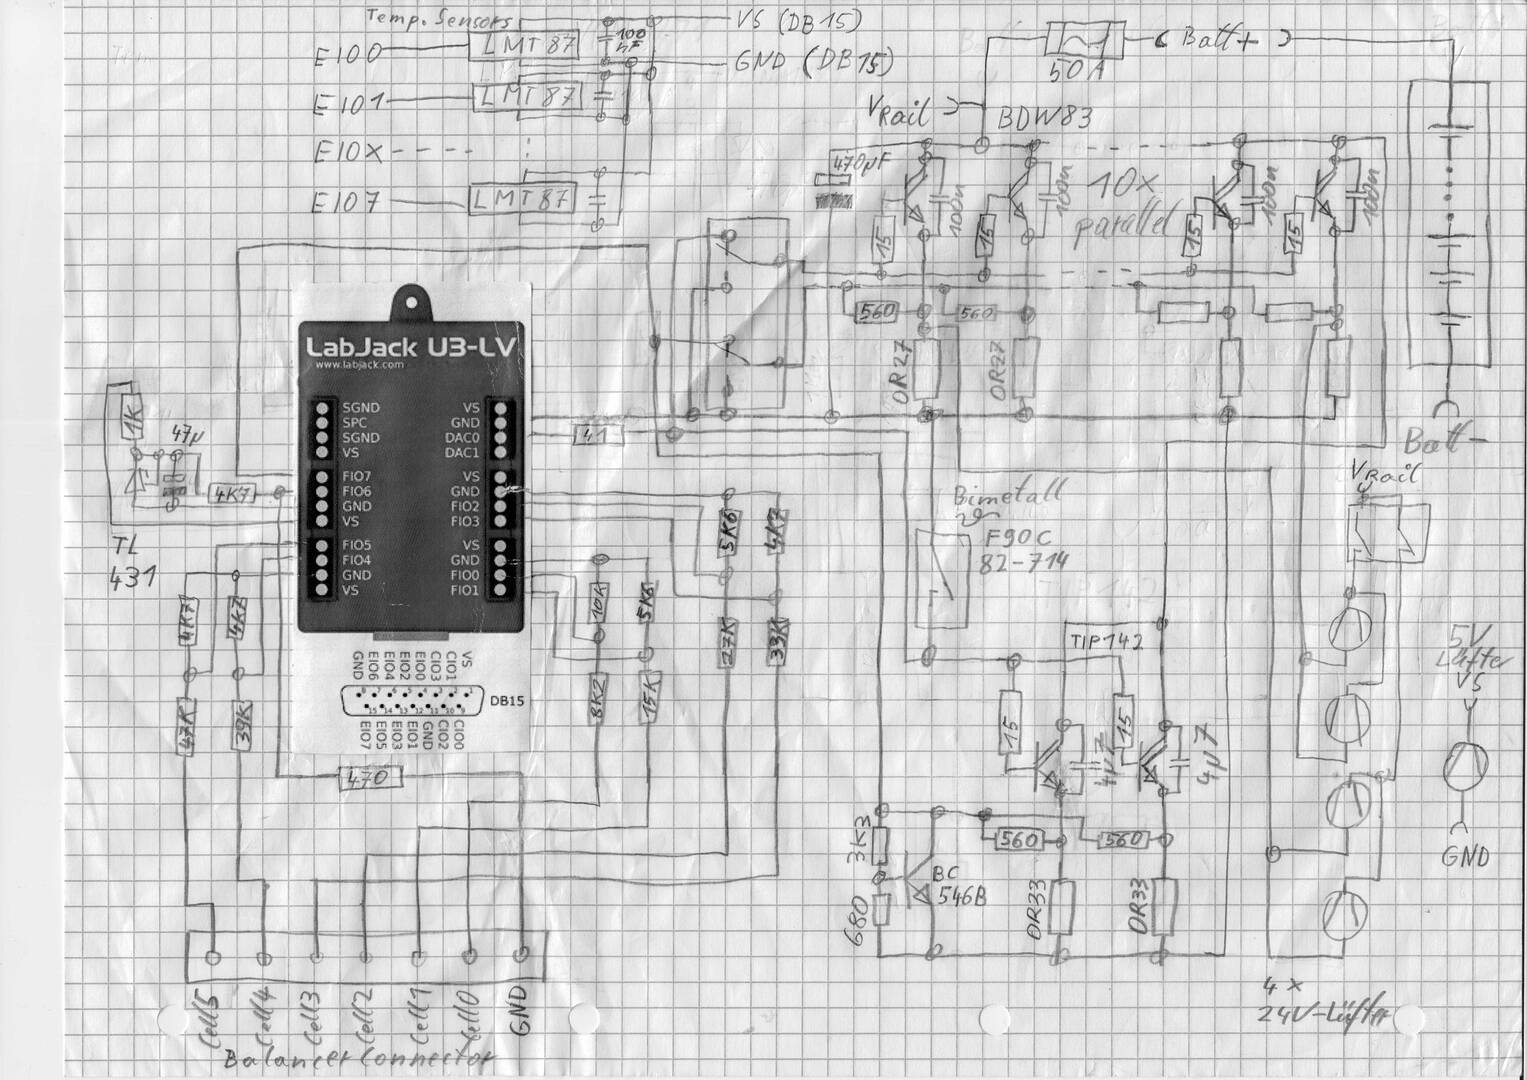 Temp. Sensors
VS (DB15)
EIO0
LMT87
100
nF
GND (DB15)
Batt+
50A
EIO1
LMT87
VRail
BDW83
EIOX
470µF
EIO7
LMT87
15
100n
15
100n
10x
parallel
15
100n
15
100n
560
560
0R27
0R27
Batt-
LabJack U3-LV
www.labjack.com
SGND
SPC
SGND
VS
FIO7
FIO6
GND
VS
FIO5
FIO4
GND
VS
VS
GND
DAC0
DAC1
VS
GND
FIO2
FIO3
VS
GND
FIO0
FIO1
1K
47µ
4K7
TL
431
4K7
4K7
47K
39K
41
5K6
4K7
27K
33K
10K
5K6
8K2
15K
GND
EIO6
EIO4
EIO2
EIO0
CIO3
CIO1
VS
DB15
EIO7
EIO5
EIO3
EIO1
GND
CIO2
CIO0
470
Bimetall
F90C
82-714
VRail
TIP142
15
15
4µ7
4µ7
3K3
680
BC
546B
560
560
0R33
0R33
5V
Lüfter
VS
GND
4x
24V-Lüfter
Cell5
Cell4
Cell3
Cell2
Cell1
Cell0
GND
Balancer Connector